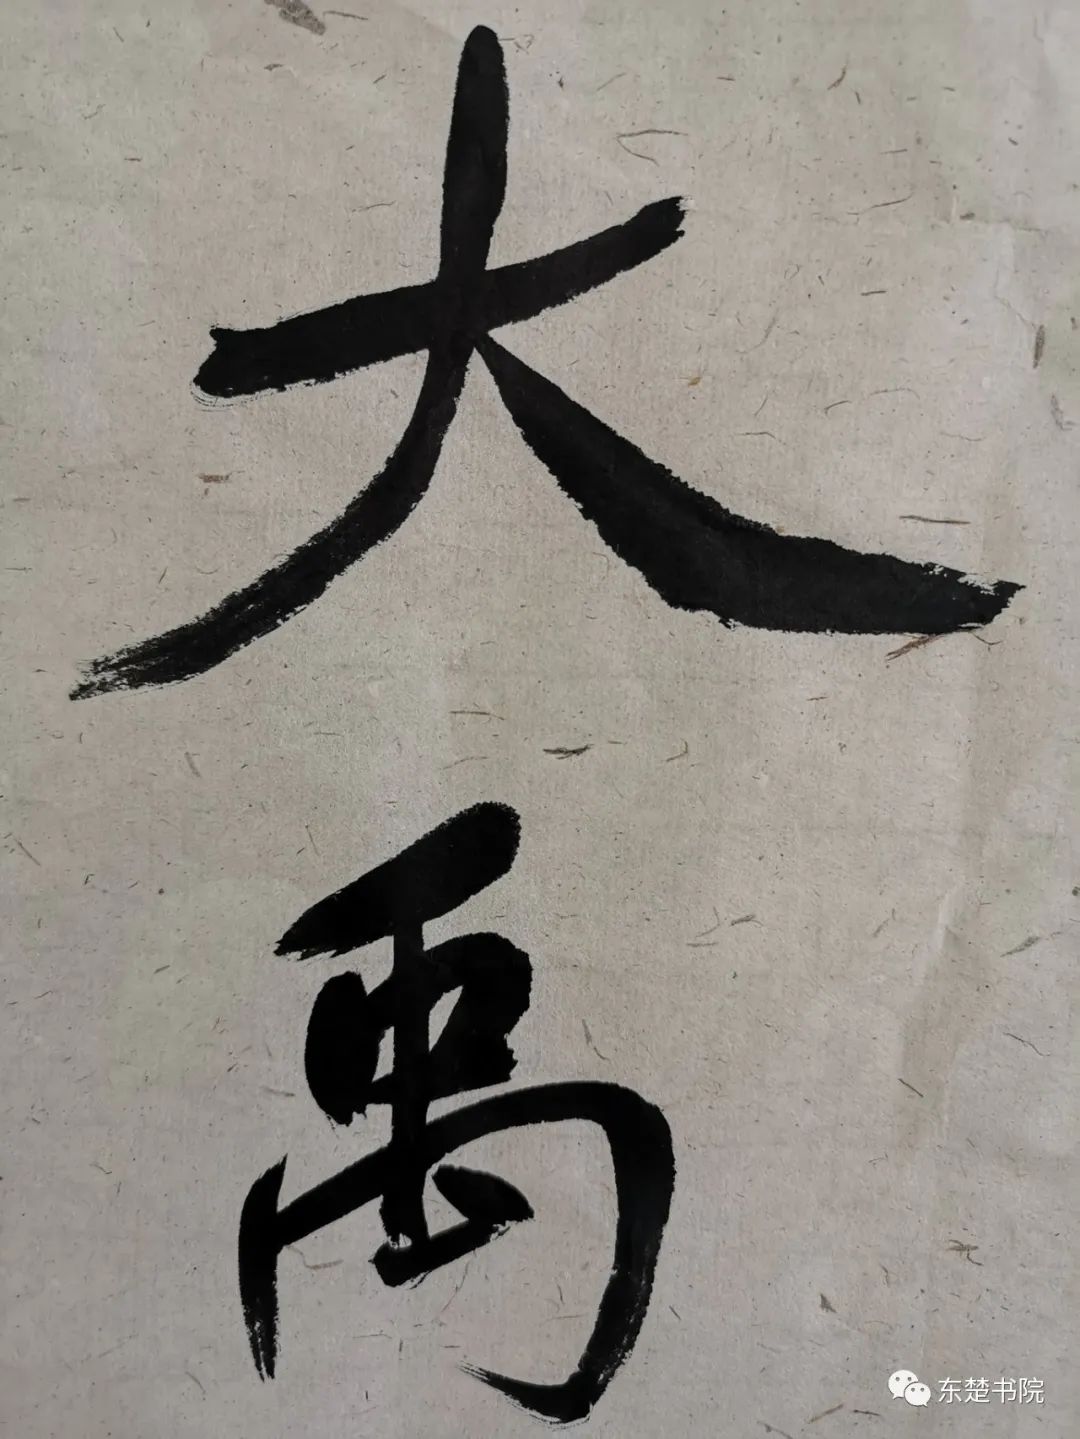 大禹
东楚书院